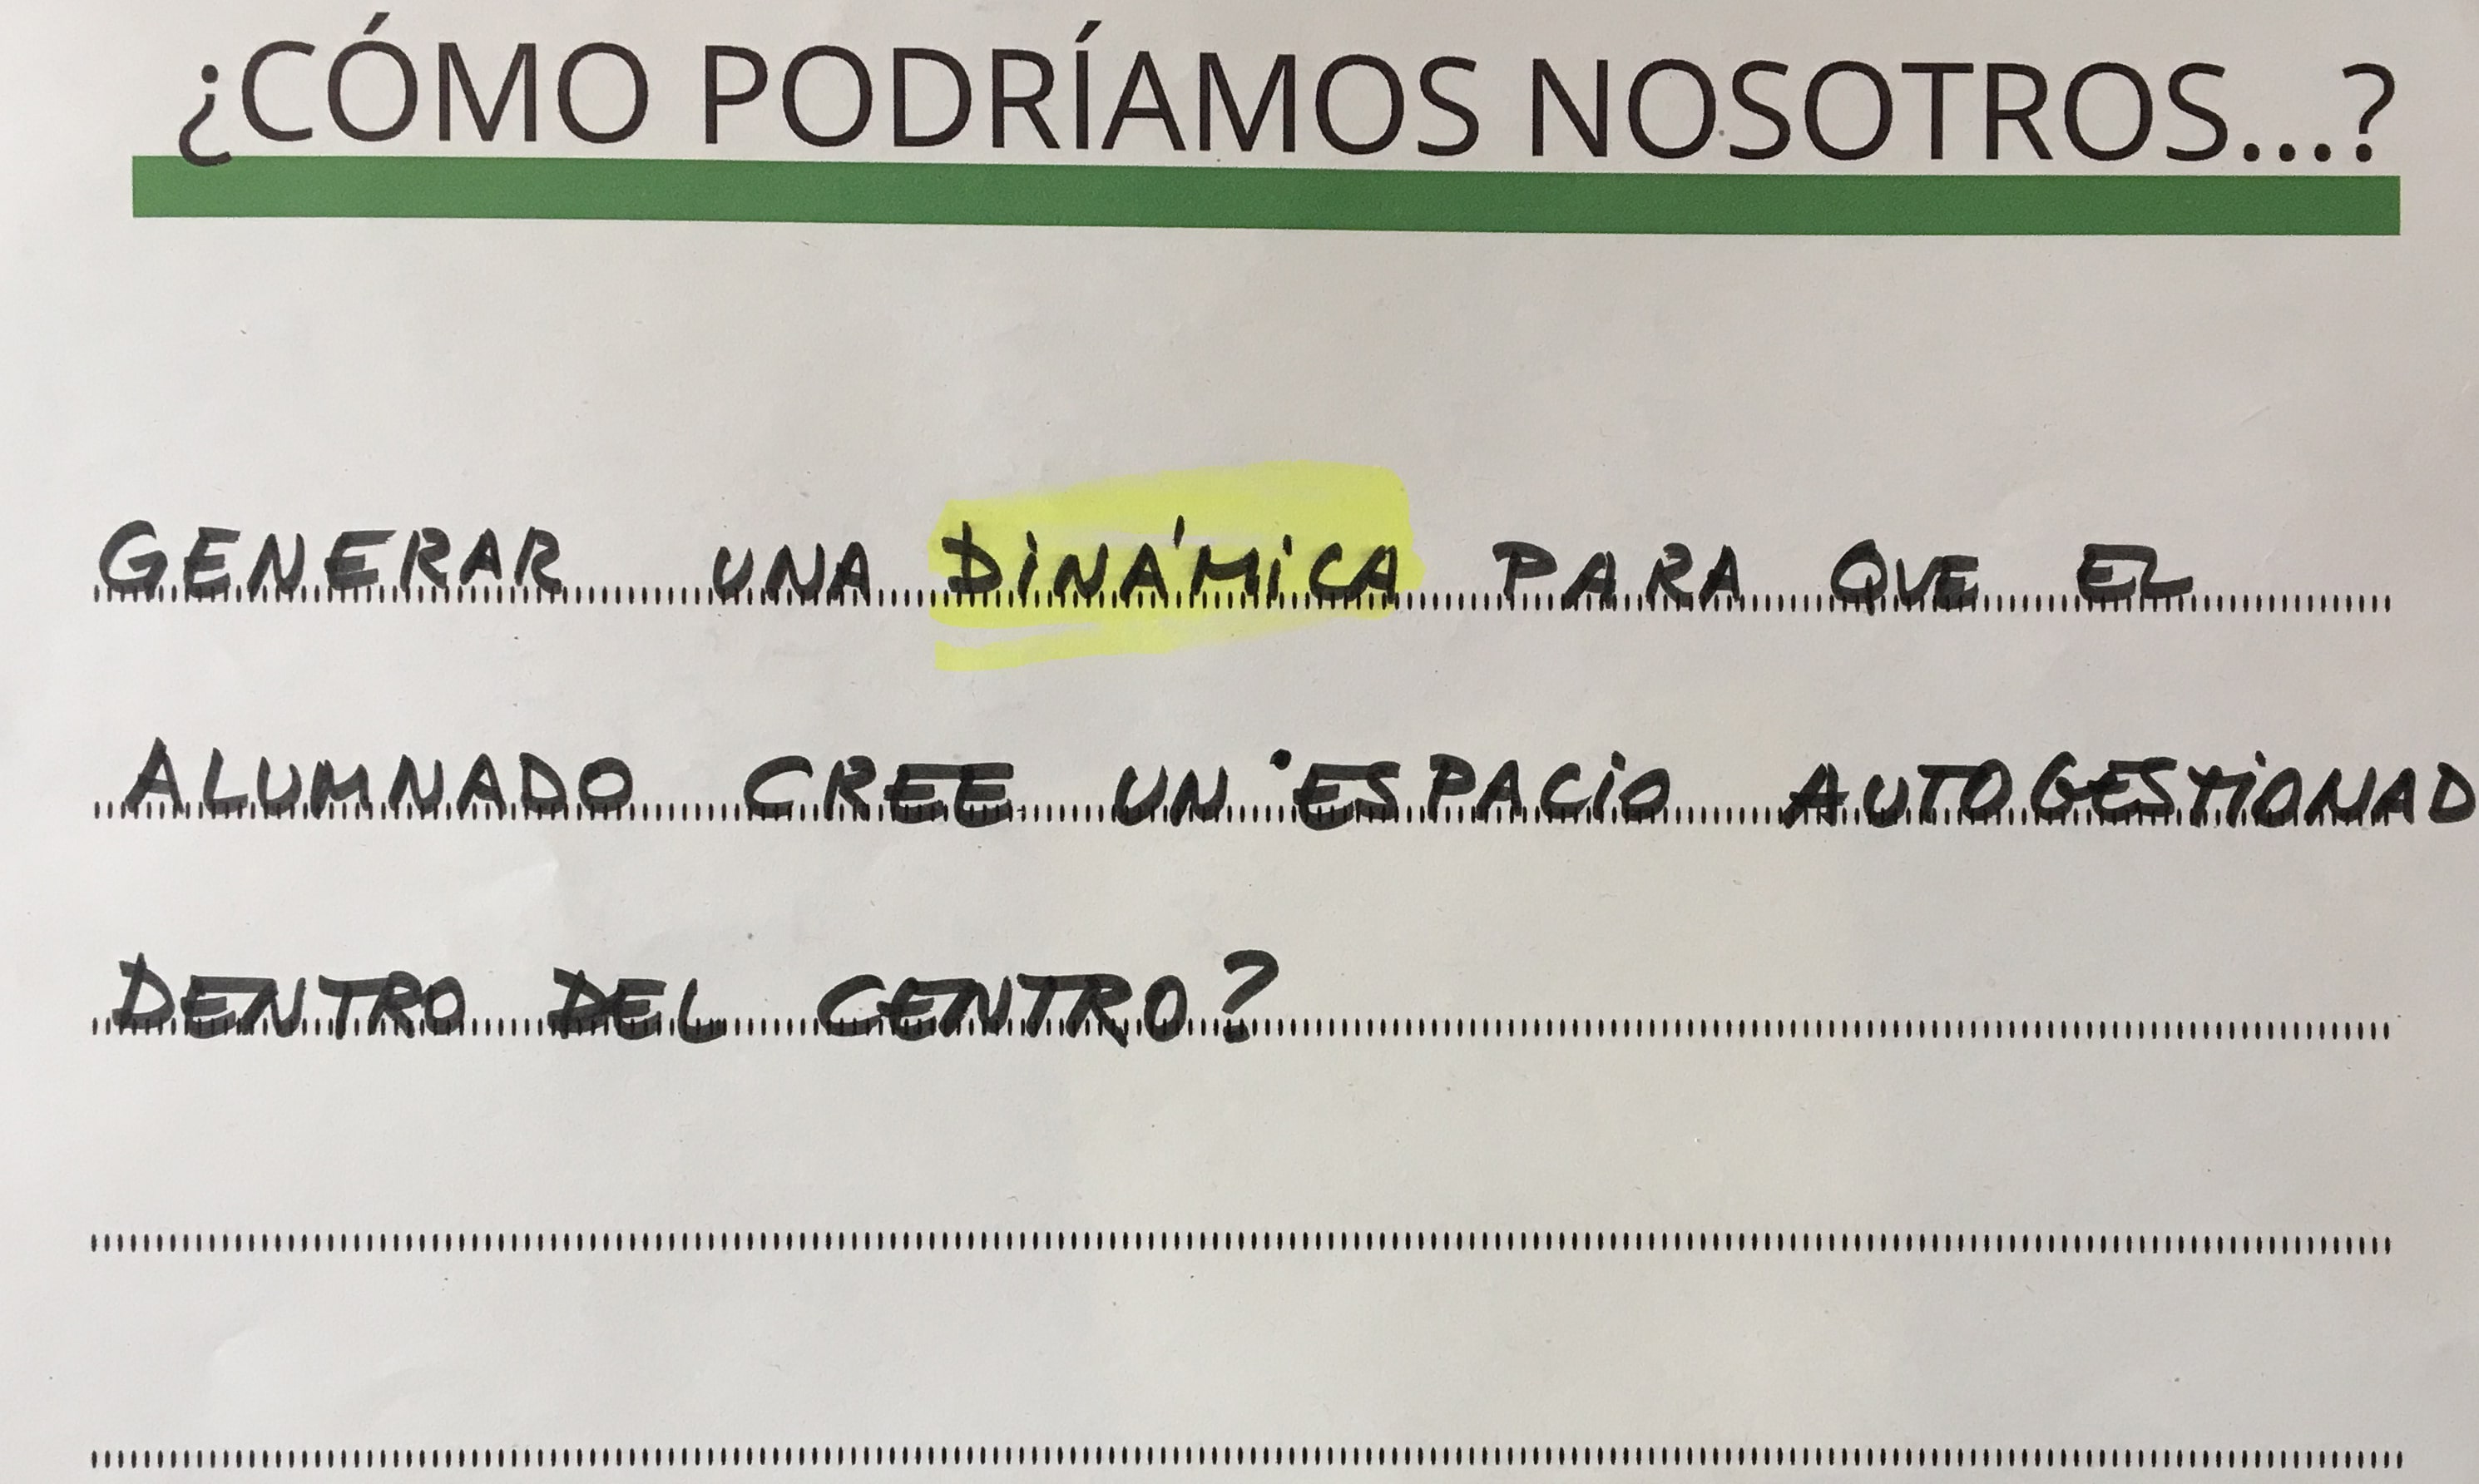 ¿CÓMO PODRÍAMOS NOSOTROS...?
GENERAR UNA DINÁMICA PARA QUE EL
ALUMNADO CREE UN ESPACIO AUTOGESTIONAD
DENTRO DEL CENTRO?